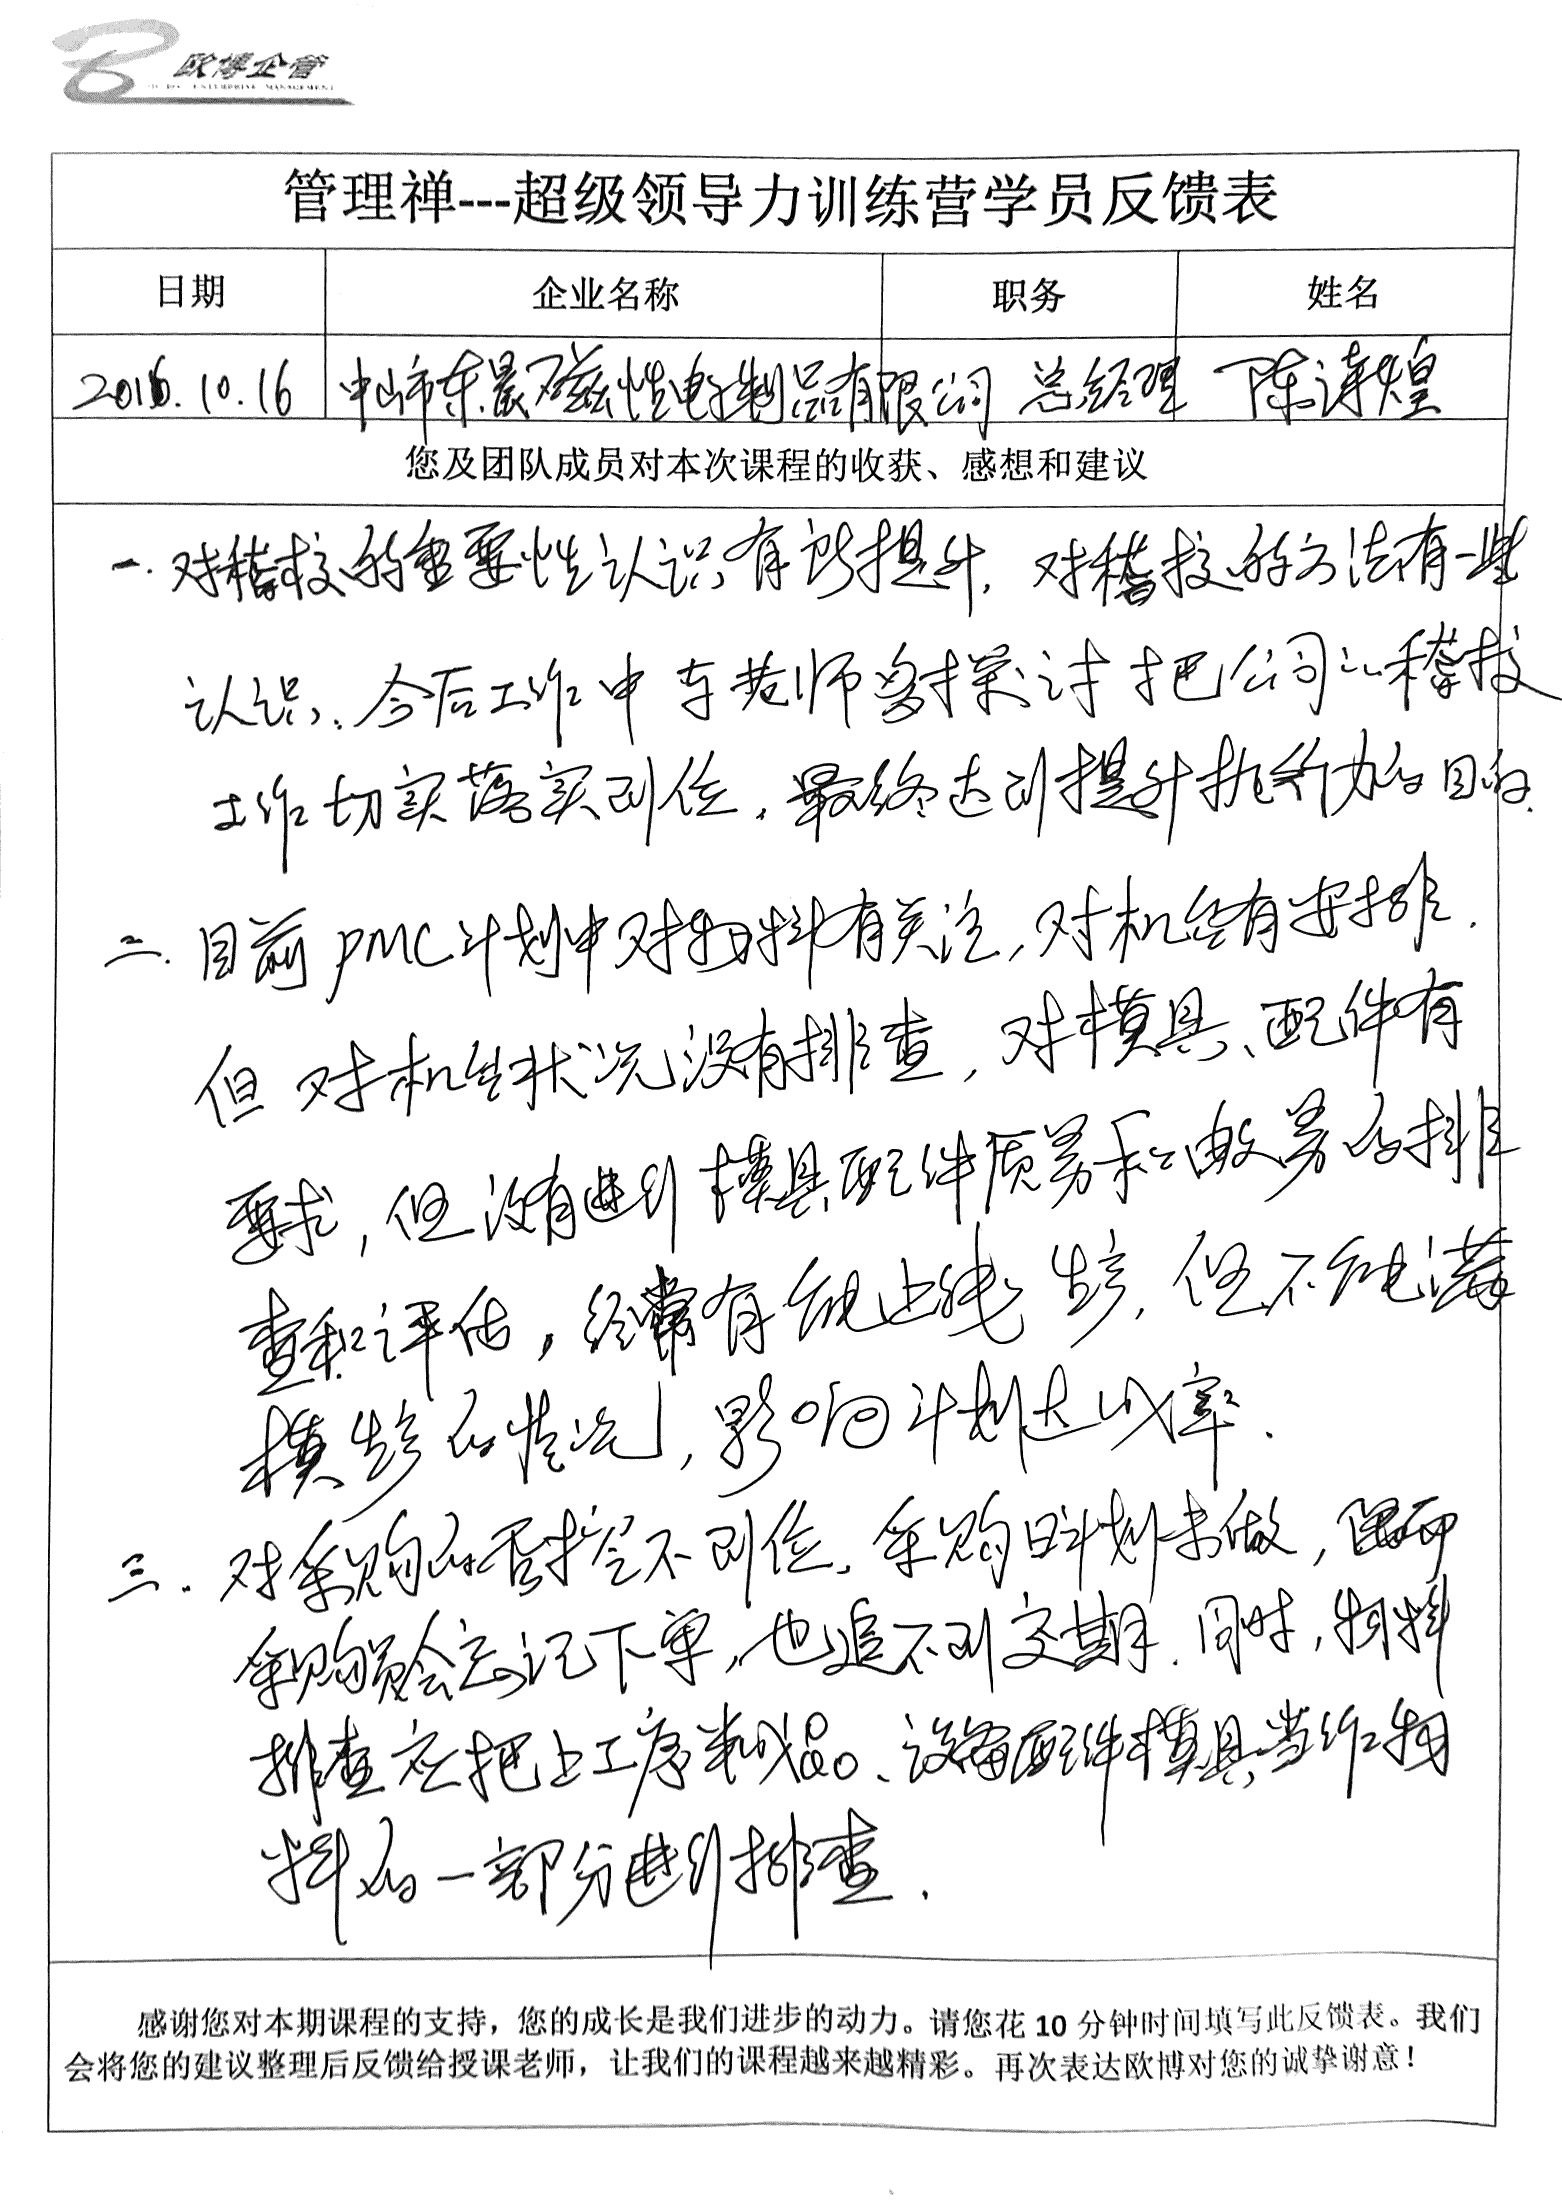 欧博企管
ENTERPRISE MANAGEMENT
管理禅---超级领导力训练营学员反馈表
日期 企业名称 职务 姓名
2016.10.16 中山市东晨磁性电子制品有限公司 总经理 陈诗煌
您及团队成员对本次课程的收获、感想和建议
一. 对稽核的重要性认识有所提升, 对稽核的方法有一些
认识、今后工作中 老师多探讨 把公司的稽核
工作切实落实到位, 最终达到提升执行力的目的.
二. 目前PMC计划中对物料有关注, 对机台有安排.
但对机台状况没有排查, 对模具、配件有
要求, 但没有进行模具配件质量和数量的排
查和评估, 经常有能上线生产, 但不能满
模生产的情况, 影响计划达成率.
三. 对采购的 控不到位, 采购日计划未做,
采购员会忘记下单, 也追不到交期. 同时, 物料
排查应把上工序半成品、设备配件模具当作物
料的一部分进行排查.
感谢您对本期课程的支持，您的成长是我们进步的动力。请您花 10 分钟时间填写此反馈表。我们
会将您的建议整理后反馈给授课老师，让我们的课程越来越精彩。再次表达欧博对您的诚挚谢意！